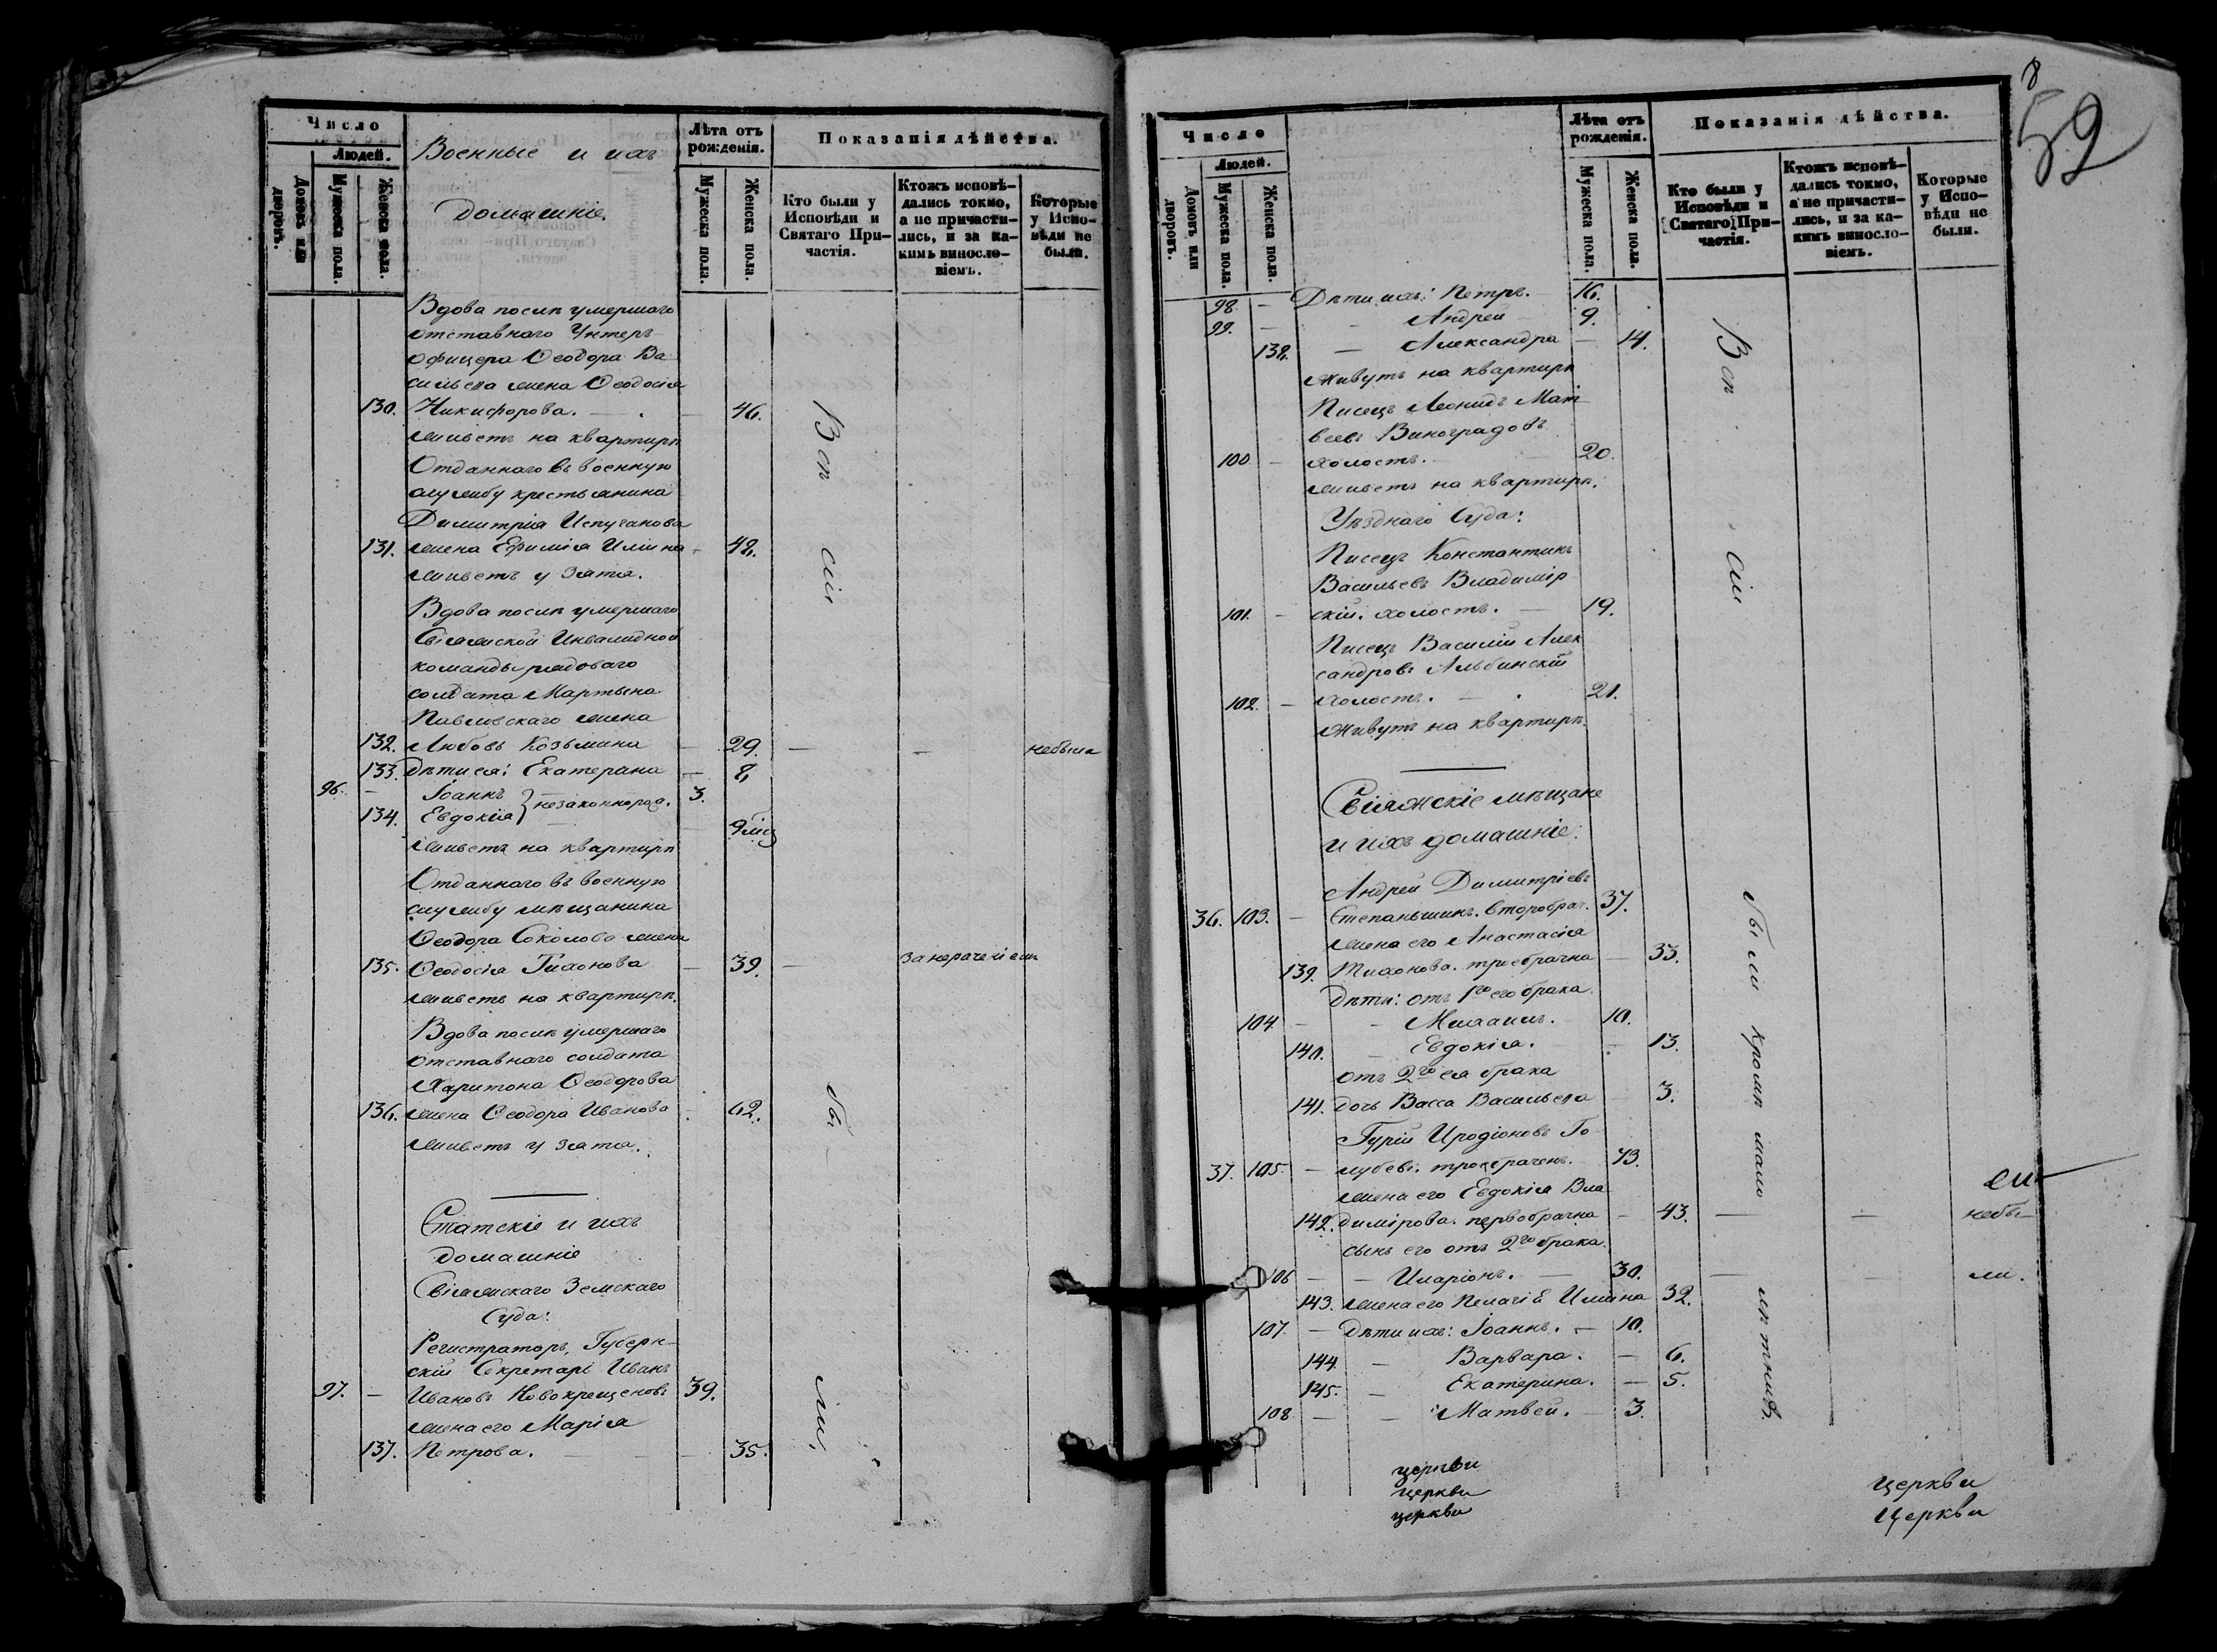 Число
Людей.
Домовъ или дворовъ.
Мужеска пола.
Женска пола.
Военные и ихъ
домашніе.
Лѣта отъ рожденія.
Мужеска пола.
Женска пола.
Показанія дѣйства.
Кто были у Исповѣди и Святаго Причастія.
Ктожъ исповѣдались токмо, а не причастились, и за какимъ винословіемъ.
Которые у Исповѣди не были.
Вдова послѣ умершаго
отставнаго Унтеръ
офицера Ѳеодора Ва
сильева жена Ѳеодосія
130. Никифорова. — 46.
живетъ на квартирѣ
Отданнаго въ военную
службу крестьянина
Димитрія Испуганова
131. жена Ефимія Ильина — 48.
живетъ у зятя.
Вдова послѣ умершаго
Свіяжской Инвалидной
команды рядоваго
солдата Мартына
Павловскаго жена
132. Любовь Козьмина — 29. — — небыла
133. Дѣти ея: Екатерина — 8
96. — Іоаннъ } незаконнорож. 3.
134. Евдокія 9 мѣс
живетъ на квартирѣ
Отданнаго въ военную
службу мѣщанина
Ѳеодора Соколова жена
135. Ѳеодосія Тихонова — 39. — за нераченіемъ
живетъ на квартирѣ.
Вдова послѣ умершаго
отставнаго солдата
Харитона Ѳеодорова
136. жена Ѳеодора Иванова 62.
живетъ у зятя.
Статскіе и ихъ
домашніе
Свіяжскаго Земскаго
Суда:
Регистраторъ, Губерн
скій Секретарь Иванъ
97. — Ивановъ Новокрещеновъ 39.
жена его Марія
137. Петрова. — 35.
Всѣ
сіи
бы
ли.
8
52
Число
Людей.
Домовъ или дворовъ.
Мужеска пола.
Женска пола.
Лѣта отъ рожденія.
Мужеска пола.
Женска пола.
Показанія дѣйства.
Кто были у Исповѣди и Святаго Причастія.
Ктожъ исповѣдались токмо, а не причастились, и за какимъ винословіемъ.
Которые у Исповѣди не были.
98. — Дѣти ихъ: Петръ. 16.
99. — — Андрей 9.
138. — Александра — 14.
живутъ на квартирѣ
Писецъ Леонидъ Мат
вѣевъ Виноградовъ
100. — холостъ. 20.
живетъ на квартирѣ.
Уѣзднаго Суда:
Писецъ Константинъ
Васильевъ Владимір
101. — скій. холостъ. — 19.
Писецъ Василій Алек
сандровъ Альбинскій
102. — холостъ. — 21.
живутъ на квартирѣ.
Свіяжскіе мѣщане
и ихъ домашніе.
Андрей Димитріевъ
36. 103. — Степаньшинъ. второбрач. 37.
жена его Анастасія
139. Тихонова. треебрачна — 33.
дѣти: отъ 1го его брака
104 — — Михаилъ. 10.
140. — Евдокія. — 13.
отъ 2го ея брака
141. дочь Васса Васильева — 3.
Гурій Иродіоновъ Го
37. 105 — лубевъ. троебраченъ. 73.
жена его Евдокія Вла
142. димірова. первобрачна — 43. — — небы
сынъ его отъ 2го брака.
106 — — Иларіонъ. — 30. — — ли.
143. жена его Пелагія Ильина 32.
107. — Дѣти ихъ: Іоаннъ. — 10.
144. — Варвара. — 6.
145. — Екатерина. — 5.
108 — — Матвей. — 3.
Всѣ
сіи
были
кромѣ
мало
лѣтнихъ
церкви
церкви
церкви
церкви
церкви